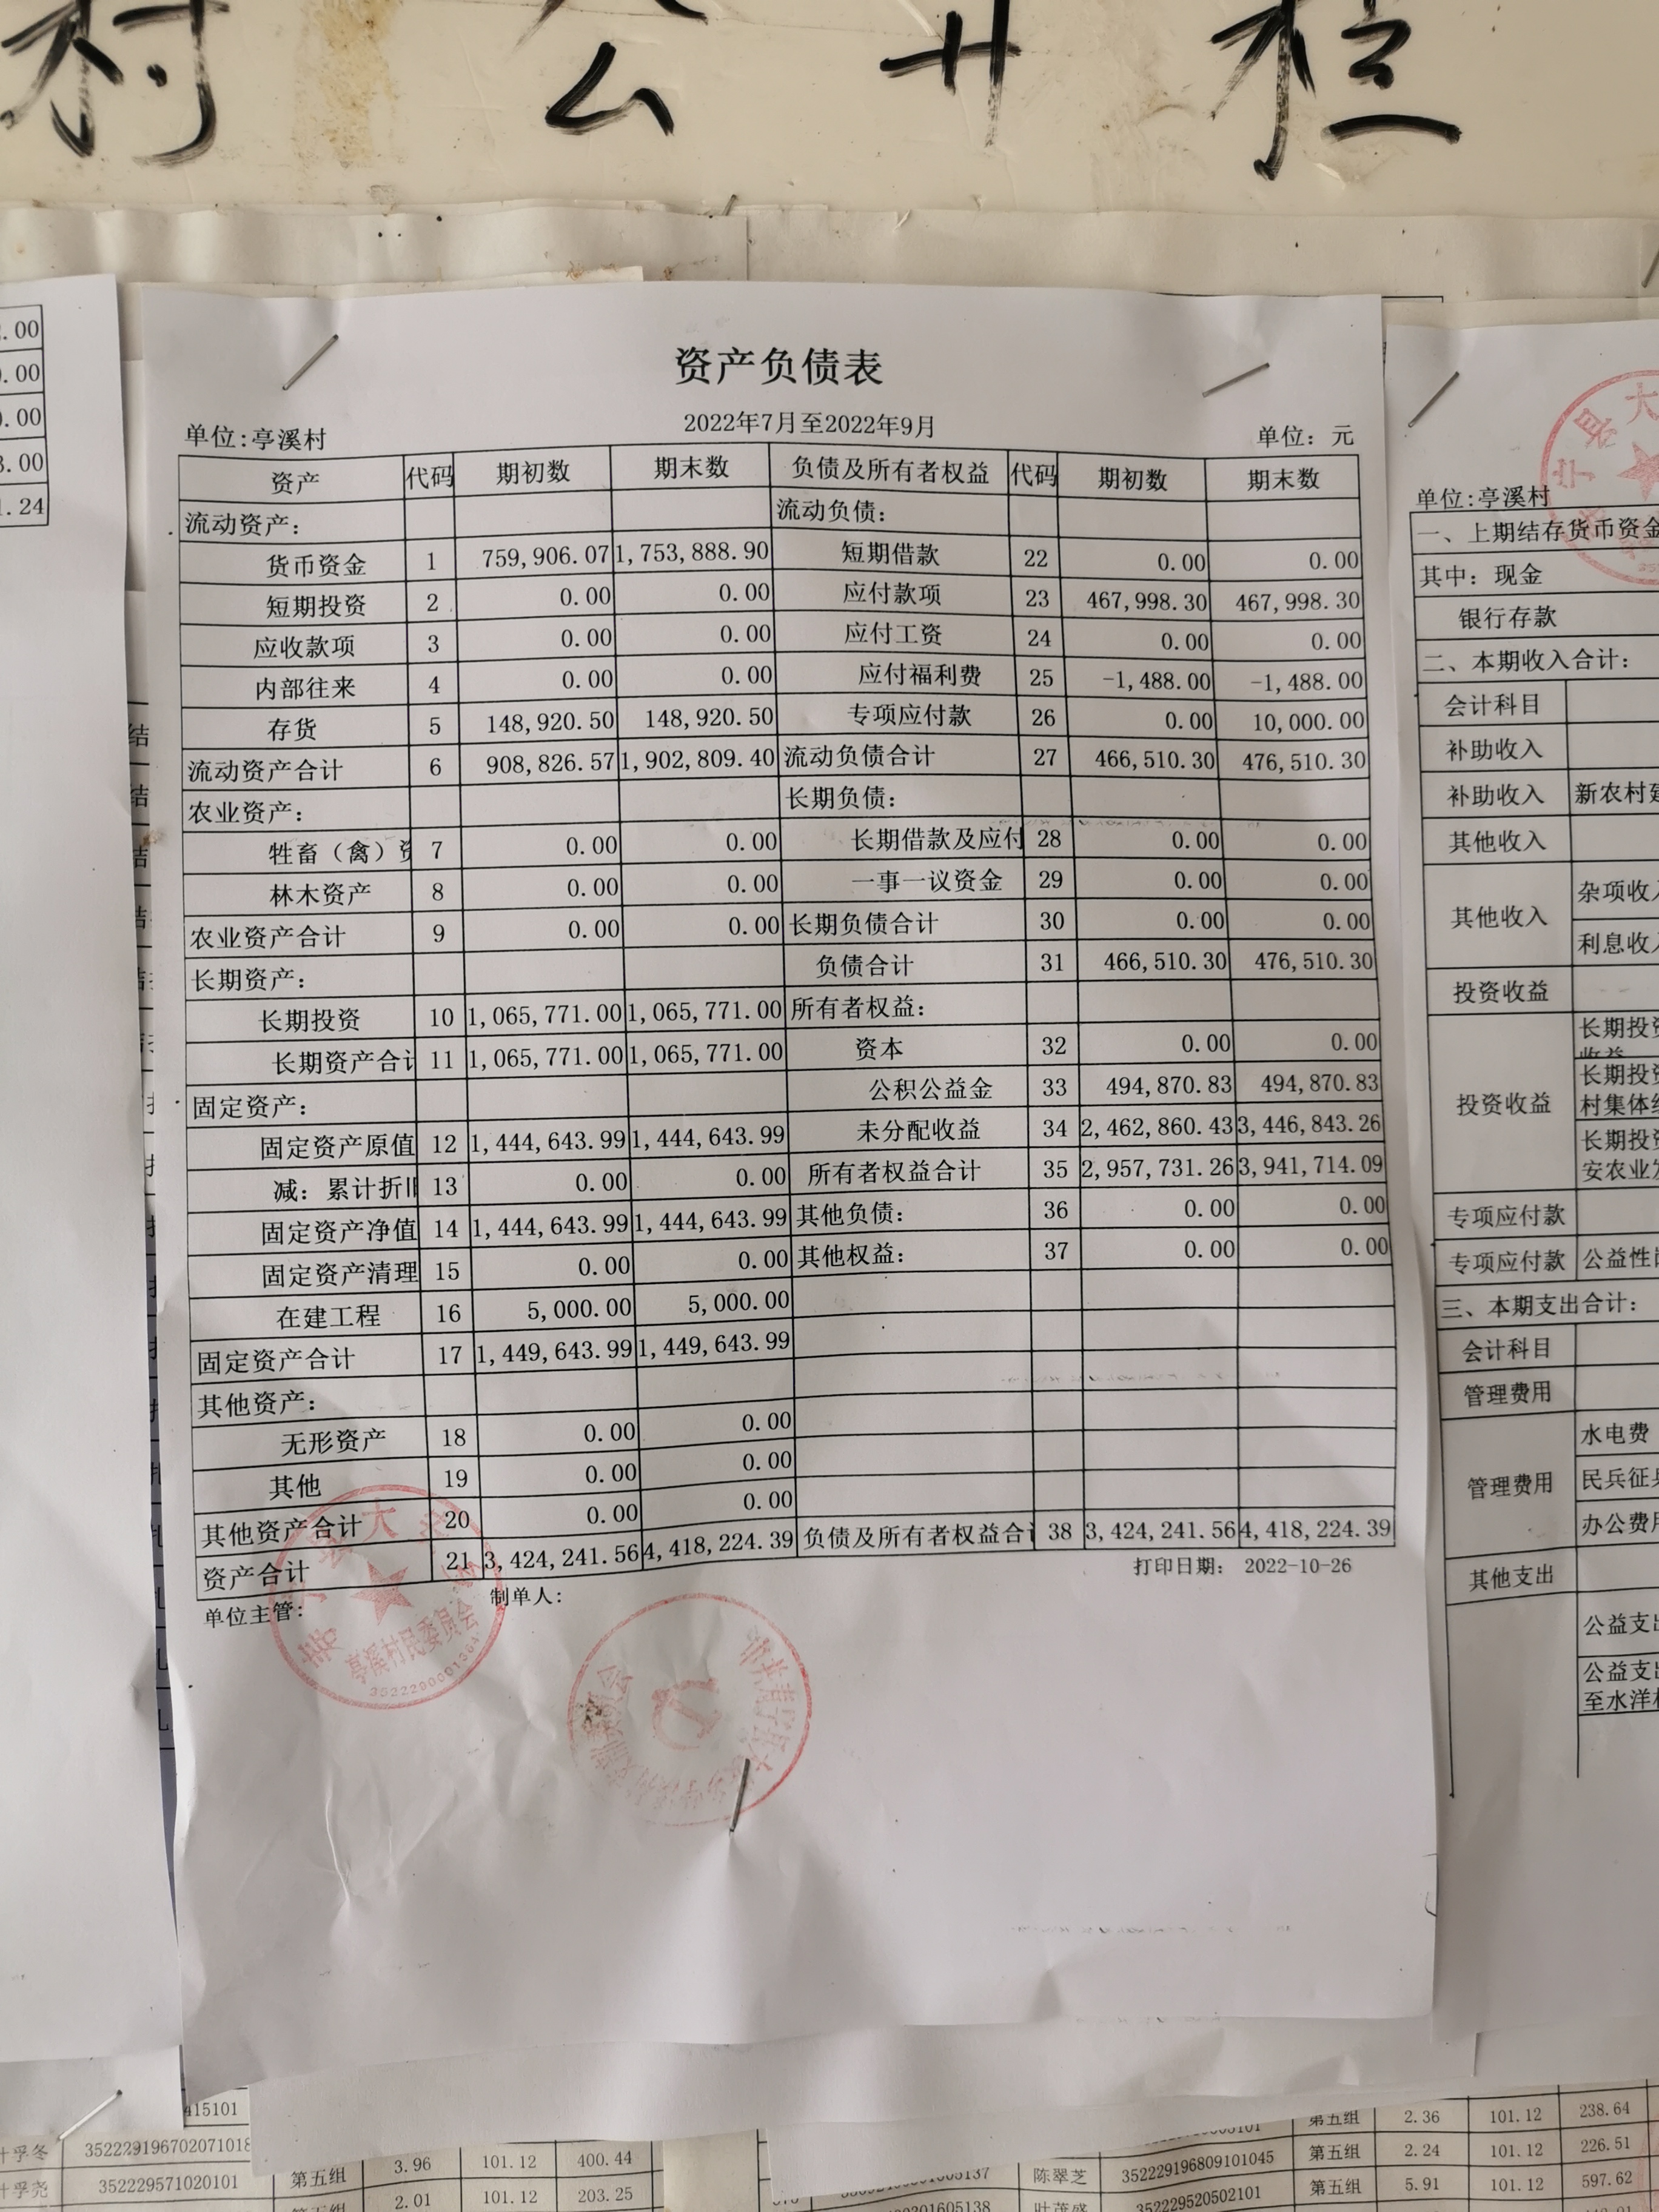 村 公 开 栏
资产负债表
2022年7月至2022年9月
单位:亭溪村 单位：元
资产 代码 期初数 期末数 负债及所有者权益 代码 期初数 期末数
流动资产： 流动负债：
货币资金 1 759,906.07 1,753,888.90 短期借款 22 0.00 0.00
短期投资 2 0.00 0.00 应付款项 23 467,998.30 467,998.30
应收款项 3 0.00 0.00 应付工资 24 0.00 0.00
内部往来 4 0.00 0.00 应付福利费 25 -1,488.00 -1,488.00
存货 5 148,920.50 148,920.50 专项应付款 26 0.00 10,000.00
流动资产合计 6 908,826.57 1,902,809.40 流动负债合计 27 466,510.30 476,510.30
农业资产： 长期负债：
牲畜（禽） 7 0.00 0.00 长期借款及应付 28 0.00 0.00
林木资产 8 0.00 0.00 一事一议资金 29 0.00 0.00
农业资产合计 9 0.00 0.00 长期负债合计 30 0.00 0.00
长期资产： 负债合计 31 466,510.30 476,510.30
长期投资 10 1,065,771.00 1,065,771.00 所有者权益：
长期资产合计 11 1,065,771.00 1,065,771.00 资本 32 0.00 0.00
固定资产： 公积公益金 33 494,870.83 494,870.83
固定资产原值 12 1,444,643.99 1,444,643.99 未分配收益 34 2,462,860.43 3,446,843.26
减：累计折旧 13 0.00 0.00 所有者权益合计 35 2,957,731.26 3,941,714.09
固定资产净值 14 1,444,643.99 1,444,643.99 其他负债： 36 0.00 0.00
固定资产清理 15 0.00 0.00 其他权益： 37 0.00 0.00
在建工程 16 5,000.00 5,000.00
固定资产合计 17 1,449,643.99 1,449,643.99
其他资产：
无形资产 18 0.00 0.00
其他 19 0.00 0.00
其他资产合计 20 0.00 0.00
资产合计 21 3,424,241.56 4,418,224.39 负债及所有者权益合计 38 3,424,241.56 4,418,224.39
单位主管： 制单人： 打印日期： 2022-10-26
亭溪村民委员会
单位:亭溪村
一、上期结存货币资金
其中：现金
银行存款
二、本期收入合计：
会计科目
补助收入
补助收入 新农村
其他收入
其他收入 杂项收入
利息收入
投资收益
投资收益 长期投资
收益
长期投资
村集体
长期投资
安农业
专项应付款
专项应付款 公益性
三、本期支出合计：
会计科目
管理费用
管理费用 水电费
民兵征
办公费用
其他支出
公益支出
公益支出
至水洋
.00
.00
.00
.00
.24
415101
孚冬 352229196702071018
孚尧 352229571020101
第五组 3.96 101.12 400.44
2.01 101.12 203.25
陈翠芝 352229196809101045
352229520502101
第五组 2.36 101.12 238.64
第五组 2.24 101.12 226.51
第五组 5.91 101.12 597.62